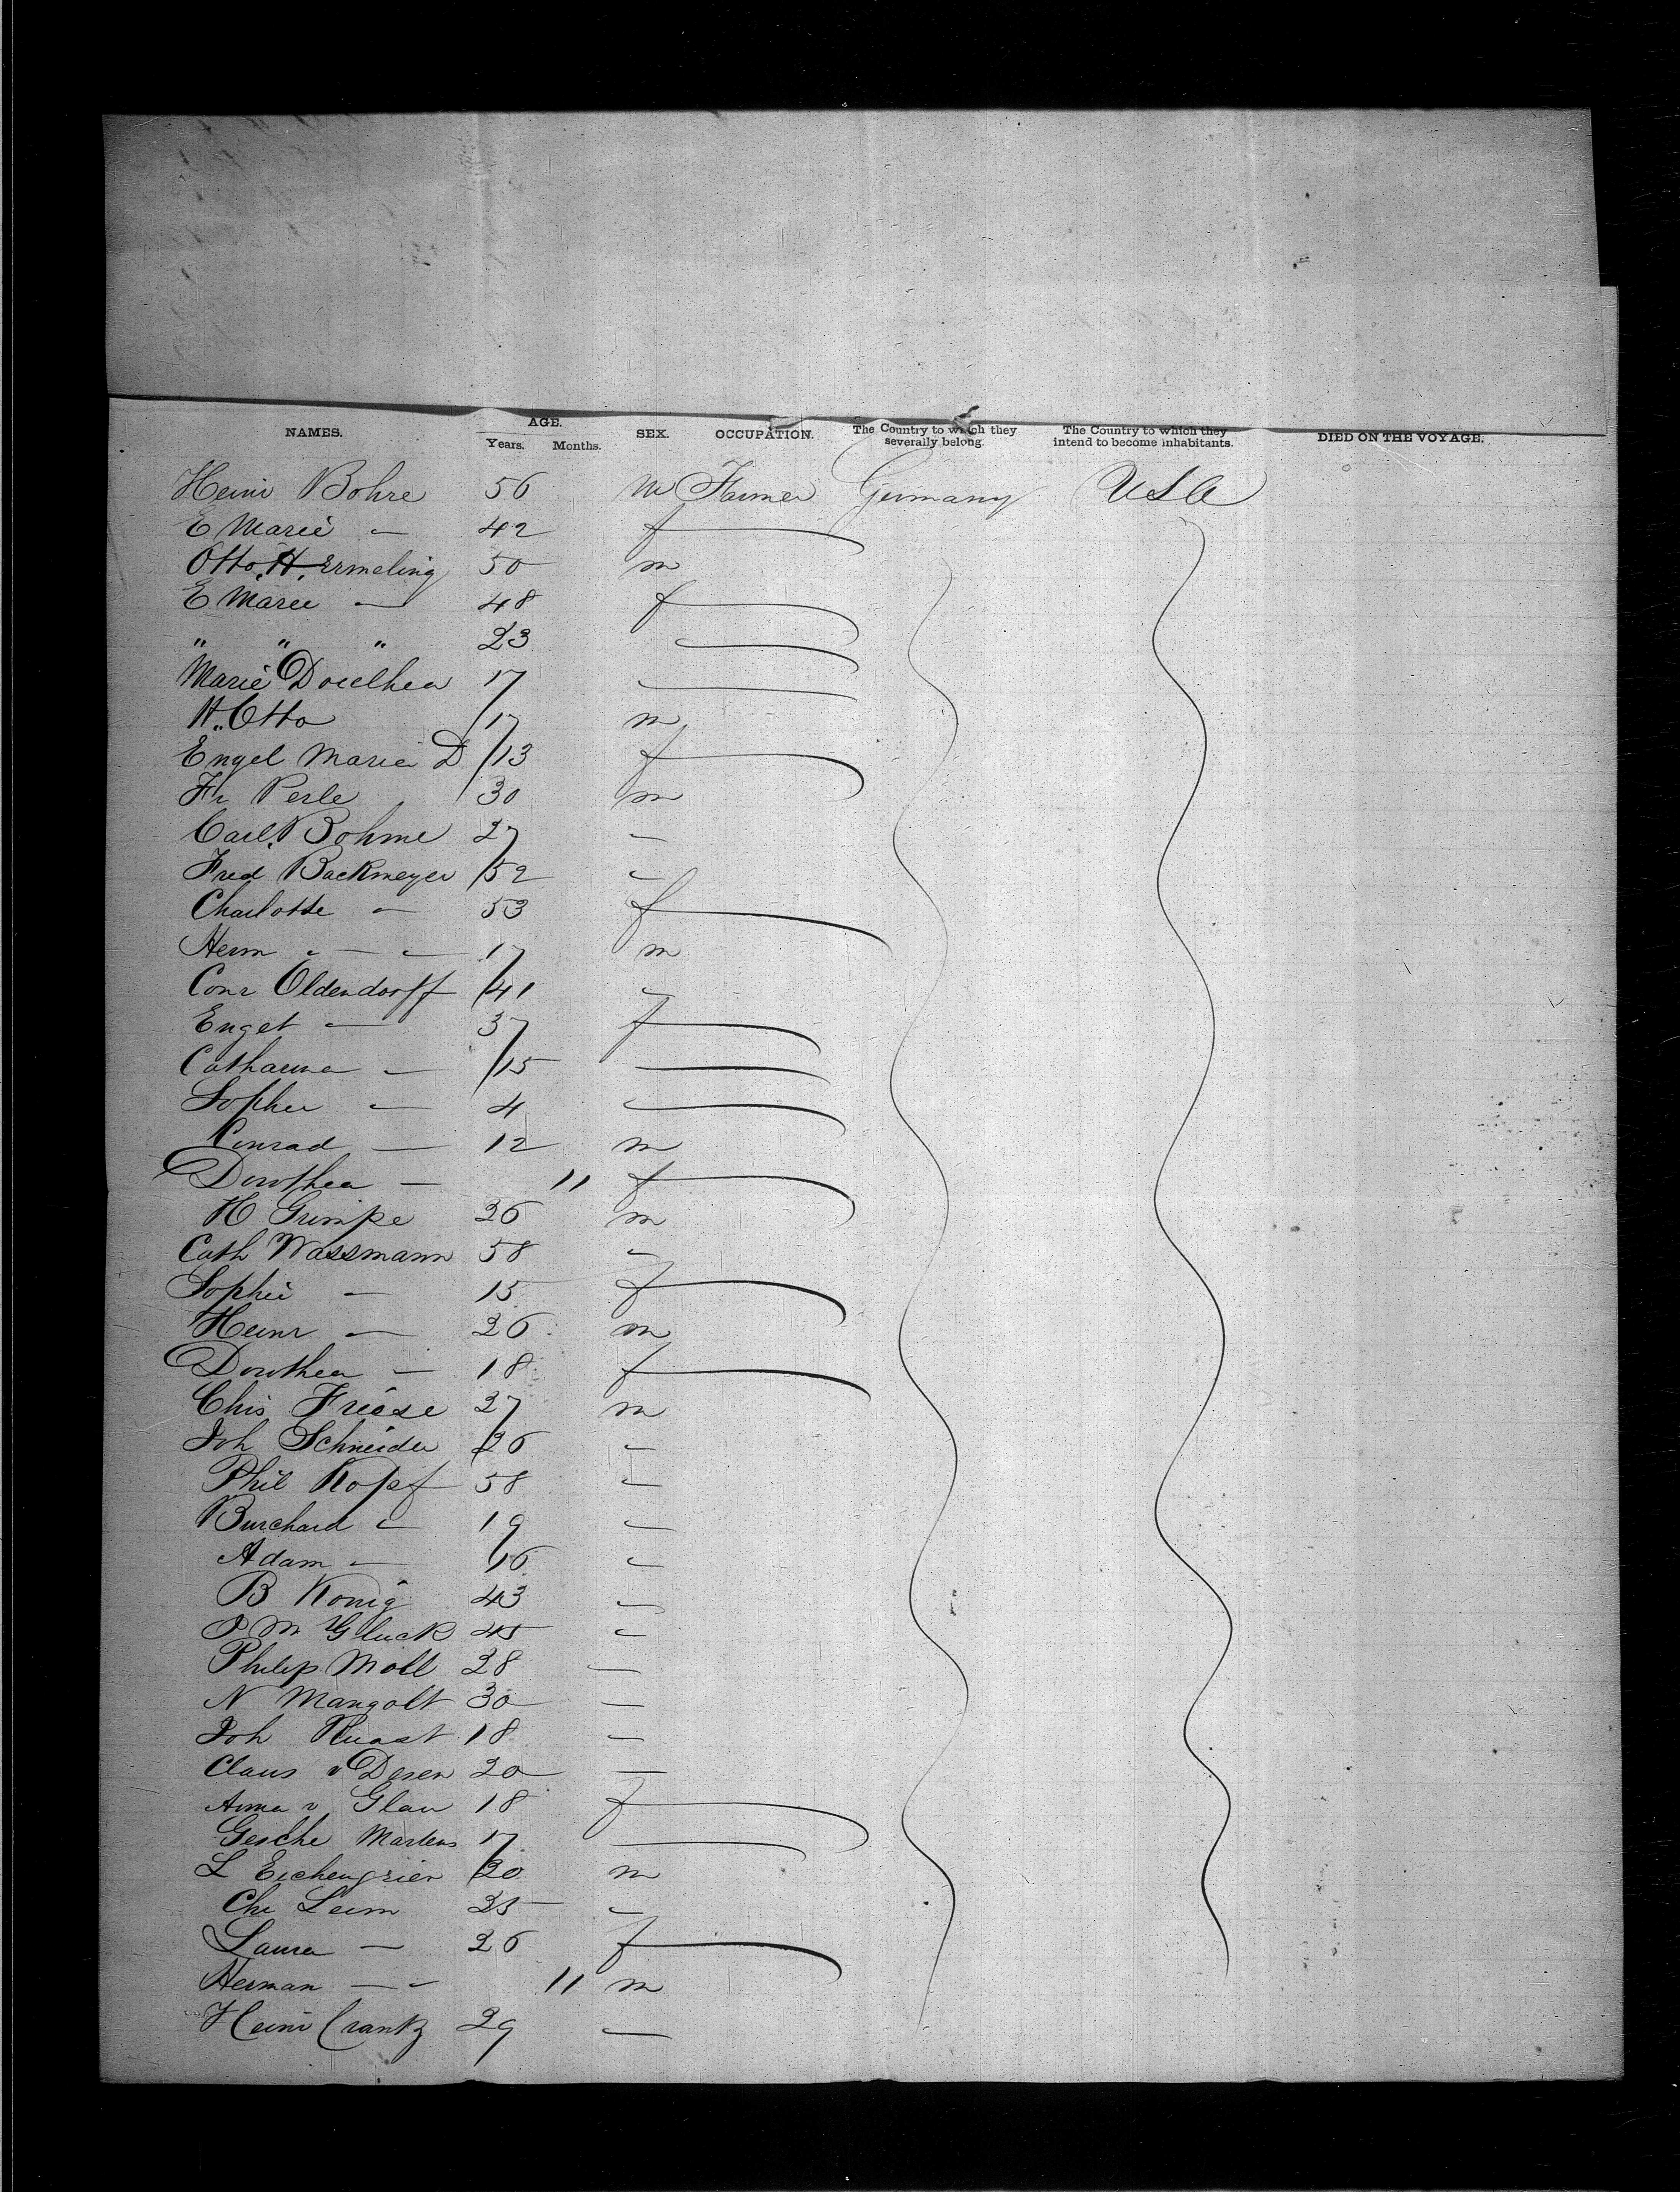 NAMES. AGE. Years. Months. SEX. OCCUPATION. The Country to which they severally belong. The Country to which they intend to become inhabitants. DIED ON THE VOYAGE.
Heinr Bohre 56 m Farmer Germany USA
E Marie — 42 f
Otto H. Ermeling 50 m
E Marie — 48 f
" " " 23
Marie Dorothea 17
H. Otto 17 m
Engel Marie D 13 f
Fr Perle 30 m
Carl Bohme 27 —
Fred Backmeyer 52 —
Charlotte — 53 f
Herm — — 17 m
Conr Oldendorff 41 —
Engel — 37 f
Catharina — 15 —
Sophie — 4 —
Conrad — 12 m
Dorothea — 11 f
H Grimpe 26 m
Cath Wassmann 58 —
Sophie — 15 f
Heinr — 26 m
Dorothea — 18 f
Chr Friese 27 m
Joh Schneider 26 —
Phil Kopf 58 —
Burchard — 19 —
Adam — 16 —
B König 43 —
J M Gluck 45 —
Philip Moll 28 —
N Mangolt 30 —
Joh Knast 18 —
Claus v Dosen 20 —
Anna v Glan 18 f
Gesche Martens 17 —
L Eichengrien 30 m
Chr Leim 35 —
Laura — 26 f
Herman — — 11 m
Heinr Crantz 29 —